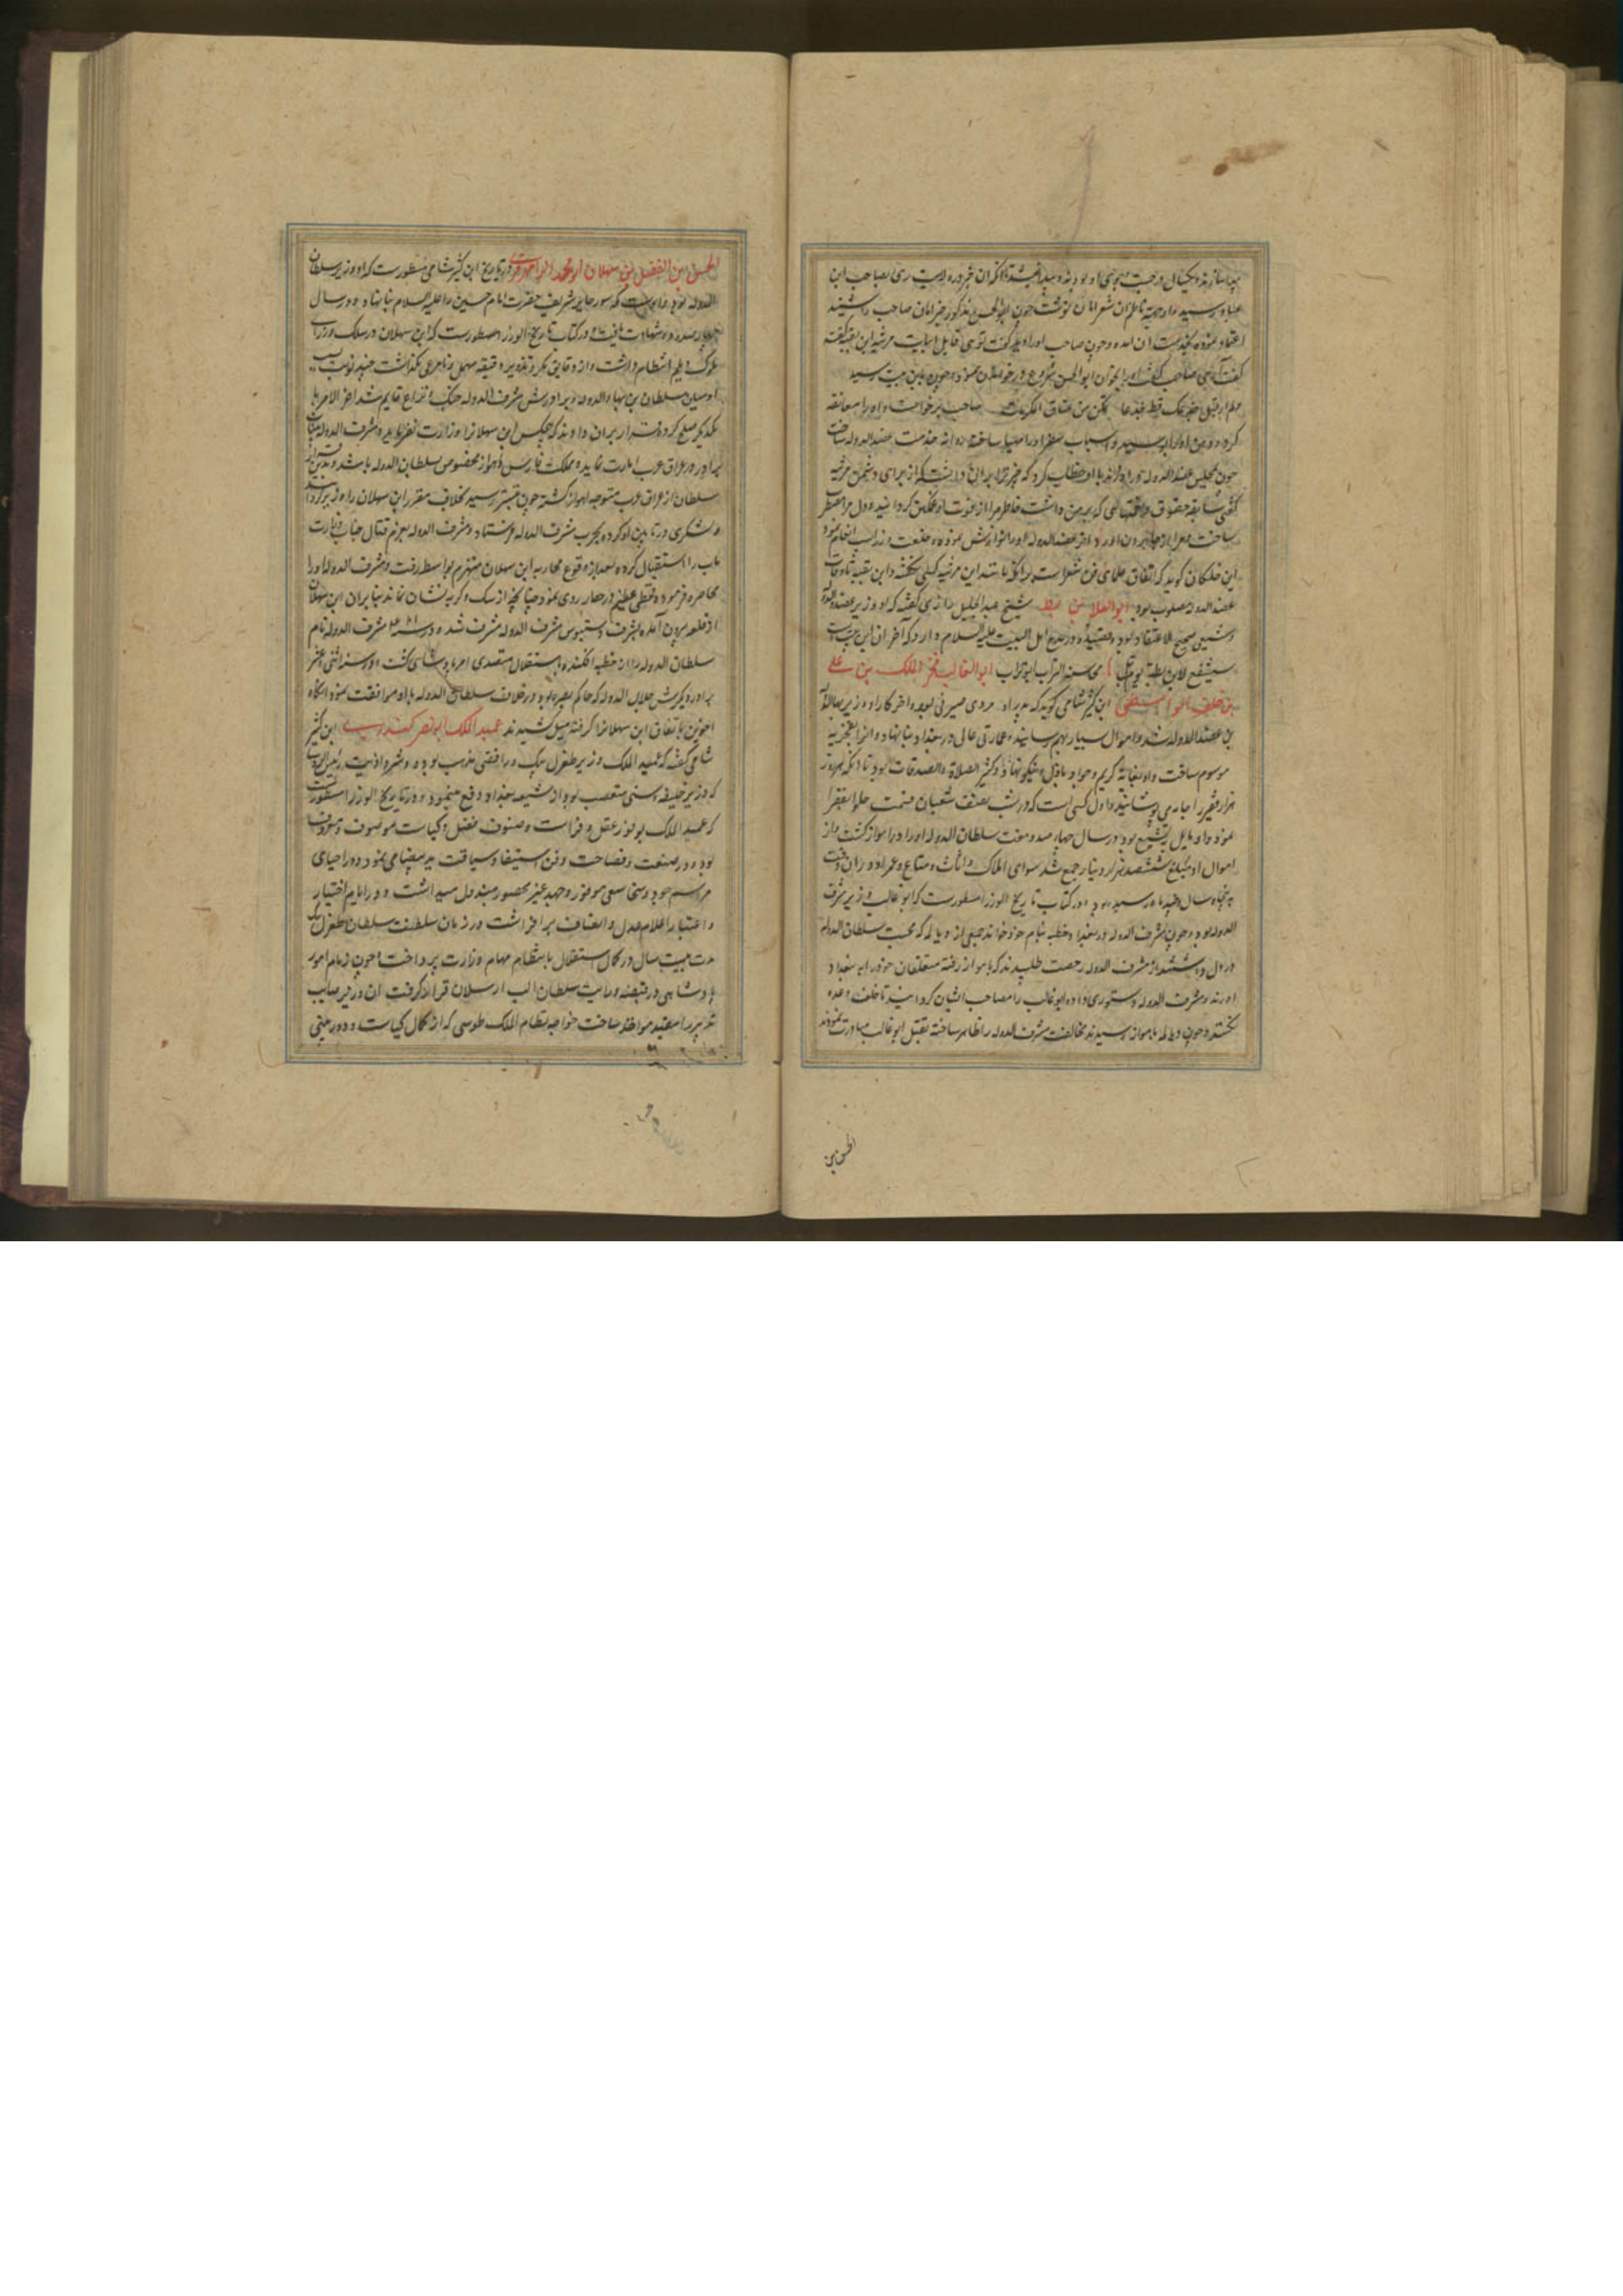 پیدا سازند و یکسال در جست و جوی او بودند و پیدا نشد تا آنکه آن خبر در ولایت ری بصاحب ابن
عباد رسید و او جهة ناظم آن شعر امان نوشت چون ابو الحسن مذکور خبر امان صاحب را شنید
اعتماد نموده بخدمت آن آمده و چون صاحب او را دید گفت توئی قایل ابیات مرثیه ابن بقیه گفت
گفت آری صاحب گفت او را بخوان ابو الحسن شروع در خواندن نمود و چون باین بیت رسید
و لم ار قبل جذعک قط جذعا تمکن من عناق المکرمات صاحب برخواست و او را معانقه
کرد و دهن او را بوسید و اسباب سفر او را مهیا ساخته روانه خدمت عضد الدوله ساخت
چون بمجلس عضد الدوله در آوردند با او خطاب کرد که چه چیز ترا بر آن داشت که از برای دشمن مرثیه
گفتی سابقه حقوق و نعمتهائی که بر من داشت خاطر مرا از فوت او غمکین کردانید و دل مرا مضطر
ساخت و عضد الدوله او را نوازش نموده خلعت و زر و اسب انعام نمود
ابن خلکان کوید که اتفاق علمای فن شعر است برانکه مانند این مرثیه کسی نگفته و ابن بقیه تا وفات
عضد الدوله مصلوب بود ابو العلا بن شیخ عبد الجلیل رازی گفته که او وزیر عضد الدوله
و شیعی صحیح الاعتقاد بود و قصیده در مدح اهل البیت علیه السلام دارد که آخر آن این بیت است
سیشفع لابن بطة یوم تبلی محاسنه التراب ابو تراب ابو الغالب فخر الملک بن علی
بن خلف الواسطی ابن کثیر شامی کوید که پدر او مردی صیرفی بود و آخر کار او وزیر بهاء الدوله
بن عضد الدوله شد و اموال بسیار بهم رسانید و عمارتی عالی در بغداد بنا نهاد و آنرا بفخریه
موسوم ساخت و او بغایة کریم و جواد و باذل و نیکو نهاد و کثیر الصلاة و الصدقات بود تا آنکه هر روز
هزار فقیر را جامه می پوشانید و اول کسی است که در شب نصف شعبان قسمت حلوا بفقرا
نمود و او مایل بتشیع بود و در سال چهارصد و هفت سلطان الدوله او را در اهواز کشت و از
اموال او مبلغ ششصد هزار دینار جمع شد سوای املاک و اثاث و متاع و عمر او در آن وقت
پنجاه سال و چند ماه رسیده بود و در کتاب تاریخ الوزرا مسطور است که ابو غالب وزیر مشرف
الدوله بود و چون مشرف الدوله در بغداد خطبه بنام خود خواند جمعی از دیالمه که محبت سلطان الدوله
در دل داشتند از مشرف الدوله رخصت طلبیدند که باهواز رفته متعلقان خود را به بغداد
آورند و مشرف الدوله دستوری داده ابو غالب را مصاحب ایشان کردانید تا خلف وعده
نکنند و چون دیالمه باهواز رسیدند مخالفت مشرف الدوله را ظاهر ساخته بقتل ابو غالب مبادرت نمودند
الحسن بن
الحسن بن الفضل بن سهلان ابو محمد الرامهرمزی در تاریخ ابن کثیر شامی مسطور است که او وزیر سلطان
الدوله بود و او است که سور حایر شریف حضرت امام حسین را علیه السلام بنا نهاد و در سال
چهارصد و شهادت یافت و در کتاب تاریخ الوزرا مسطور است که ابن سهلان در سلک وزرای
ملوک دیلم انتظام داشت و از دقایق مکر و تزویر دقیقه مهمل و نامرعی نگذاشت چند نوبت بسبب
او میان سلطان بن بهاء الدوله و برادرش مشرف الدوله جنک و نزاع قایم شد آخر الامر با
یکدیگر صلح کردند و قرار بر آن دادند که هیچکس ابن سهلانرا وزارت نفرمایند و مشرف الدوله بنیابت
برادر در عراق عرب امارت نماید و مملکت فارس و اهواز مخصوص سلطان الدوله باشد و بعد از آن
سلطان از عراق عرب متوجه اهواز کشته چون بتستر رسید بخلاف مقرر ابن سهلان را وزیر کردانید
و لشکری در تابین او کرده بحرب مشرف الدوله فرستاد و مشرف الدوله بعزم قتال جناب وزارت
مآب را استقبال کرده بعد از وقوع محاربه ابن سهلان منهزم بواسط رفت و مشرف الدوله او را
محاصره فرموده قحطی عظیم در حصار روی نمود چنانچه از سک و کربه نشان نماند بنابر آن ابن سهلان
از قلعه بیرون آمده بشرف دستبوس مشرف الدوله مشرف شد و در سنه ۴۱۱ مشرف الدوله نام
سلطان الدوله را از خطبه افکنده باستقلال متصدی امر پادشاهی کشت و در سنه اثنی عشر
برادر دیکرش جلال الدوله که حاکم بصره بود در خلاف سلطان الدوله با او موافقت نمود آنکاه
اخوین باتفاق ابن سهلانرا گرفته میل کشیدند عمید الملک ابو نصر کندری ابن کثیر
شامی گفته که عمید الملک وزیر طغرل بیک و رافضی مذهب بوده و شر و اذیت رئیس الروسا
که وزیر خلیفه و سنی متعصب بود از شیعه بغداد دفع مینمود و در تاریخ الوزرا مسطور است
که عمید الملک بوفور عقل و فراست و صنوف فضل و کیاست موصوف و معروف
بوده و در صنعت و فصاحت و فن استیفا و سیاقت ید بیضا می نمود و در احیای
مراسم جود و سخا سعی موفور و جهد غیر محصور مبذول میداشت و در ایام اختیار
و اعتبار اعلام عدل و انصاف بر افراشت و در زمان سلطنت سلطان طغرل بیک
مدت بیست سال در کمال استقلال بانتظام مهام وزارت پرداخت و چون زمام امور
پادشاهی در قبضه درایت سلطان الب ارسلان قرار گرفت آن وزیر صایب
تدبیر را مقید و مواخذ ساخت خواجه نظام الملک طوسی که از کمال کیاست و دوربینی